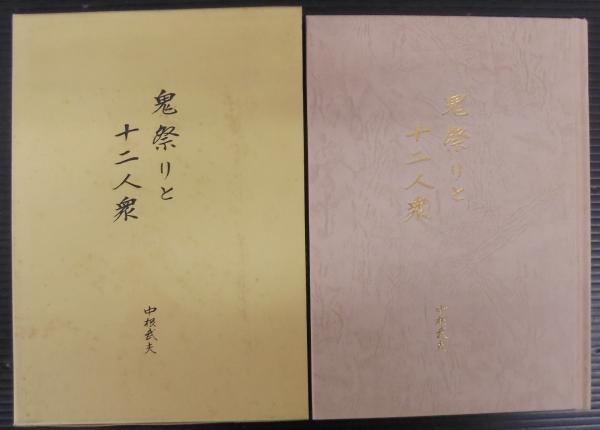 鬼祭りと
十二人衆
中根武夫
鬼祭りと
十二人衆
中根武夫